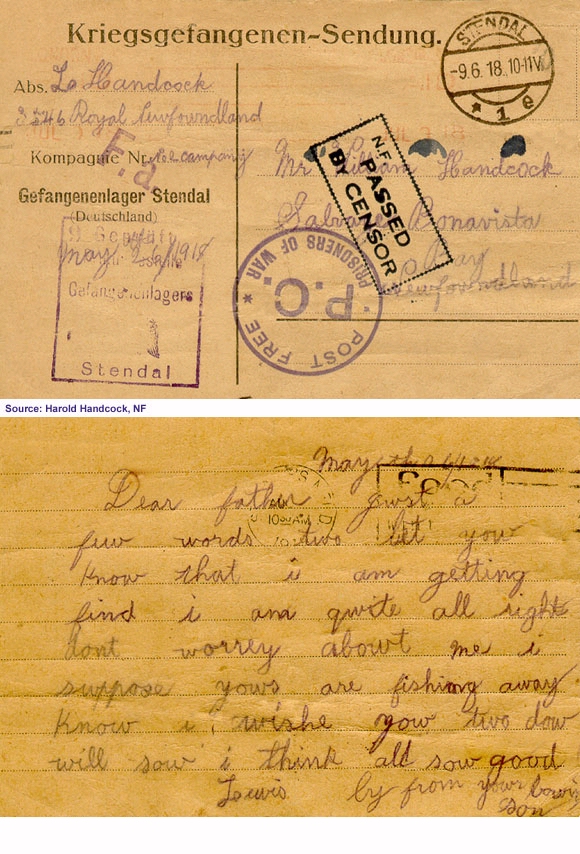 Kriegsgefangenen-Sendung.
STENDAL
-9.6.18.10-11V.
* 1 e
Abs. L Handcock
3546 Royal Newfoundland
F.a
Kompagnie Nr. company
Gefangenenlager Stendal
(Deutschland)
May 1918
Gefangenenlagers
Stendal
N.F.
PASSED
BY CENSOR
Mr William Handcock
Salvage Bonavista
Bay
Newfoundland
POST FREE * PRISONERS OF WAR *
P.C.
Source: Harold Handcock, NF
May
Dear father jwst a
few words two let you
know that i am getting
find i am qwite all right
dont worrey abowt me i
suppose yows are fishing away
know i wishe yow two dow
will sow i think all sow good
Lewis by from your loving
son